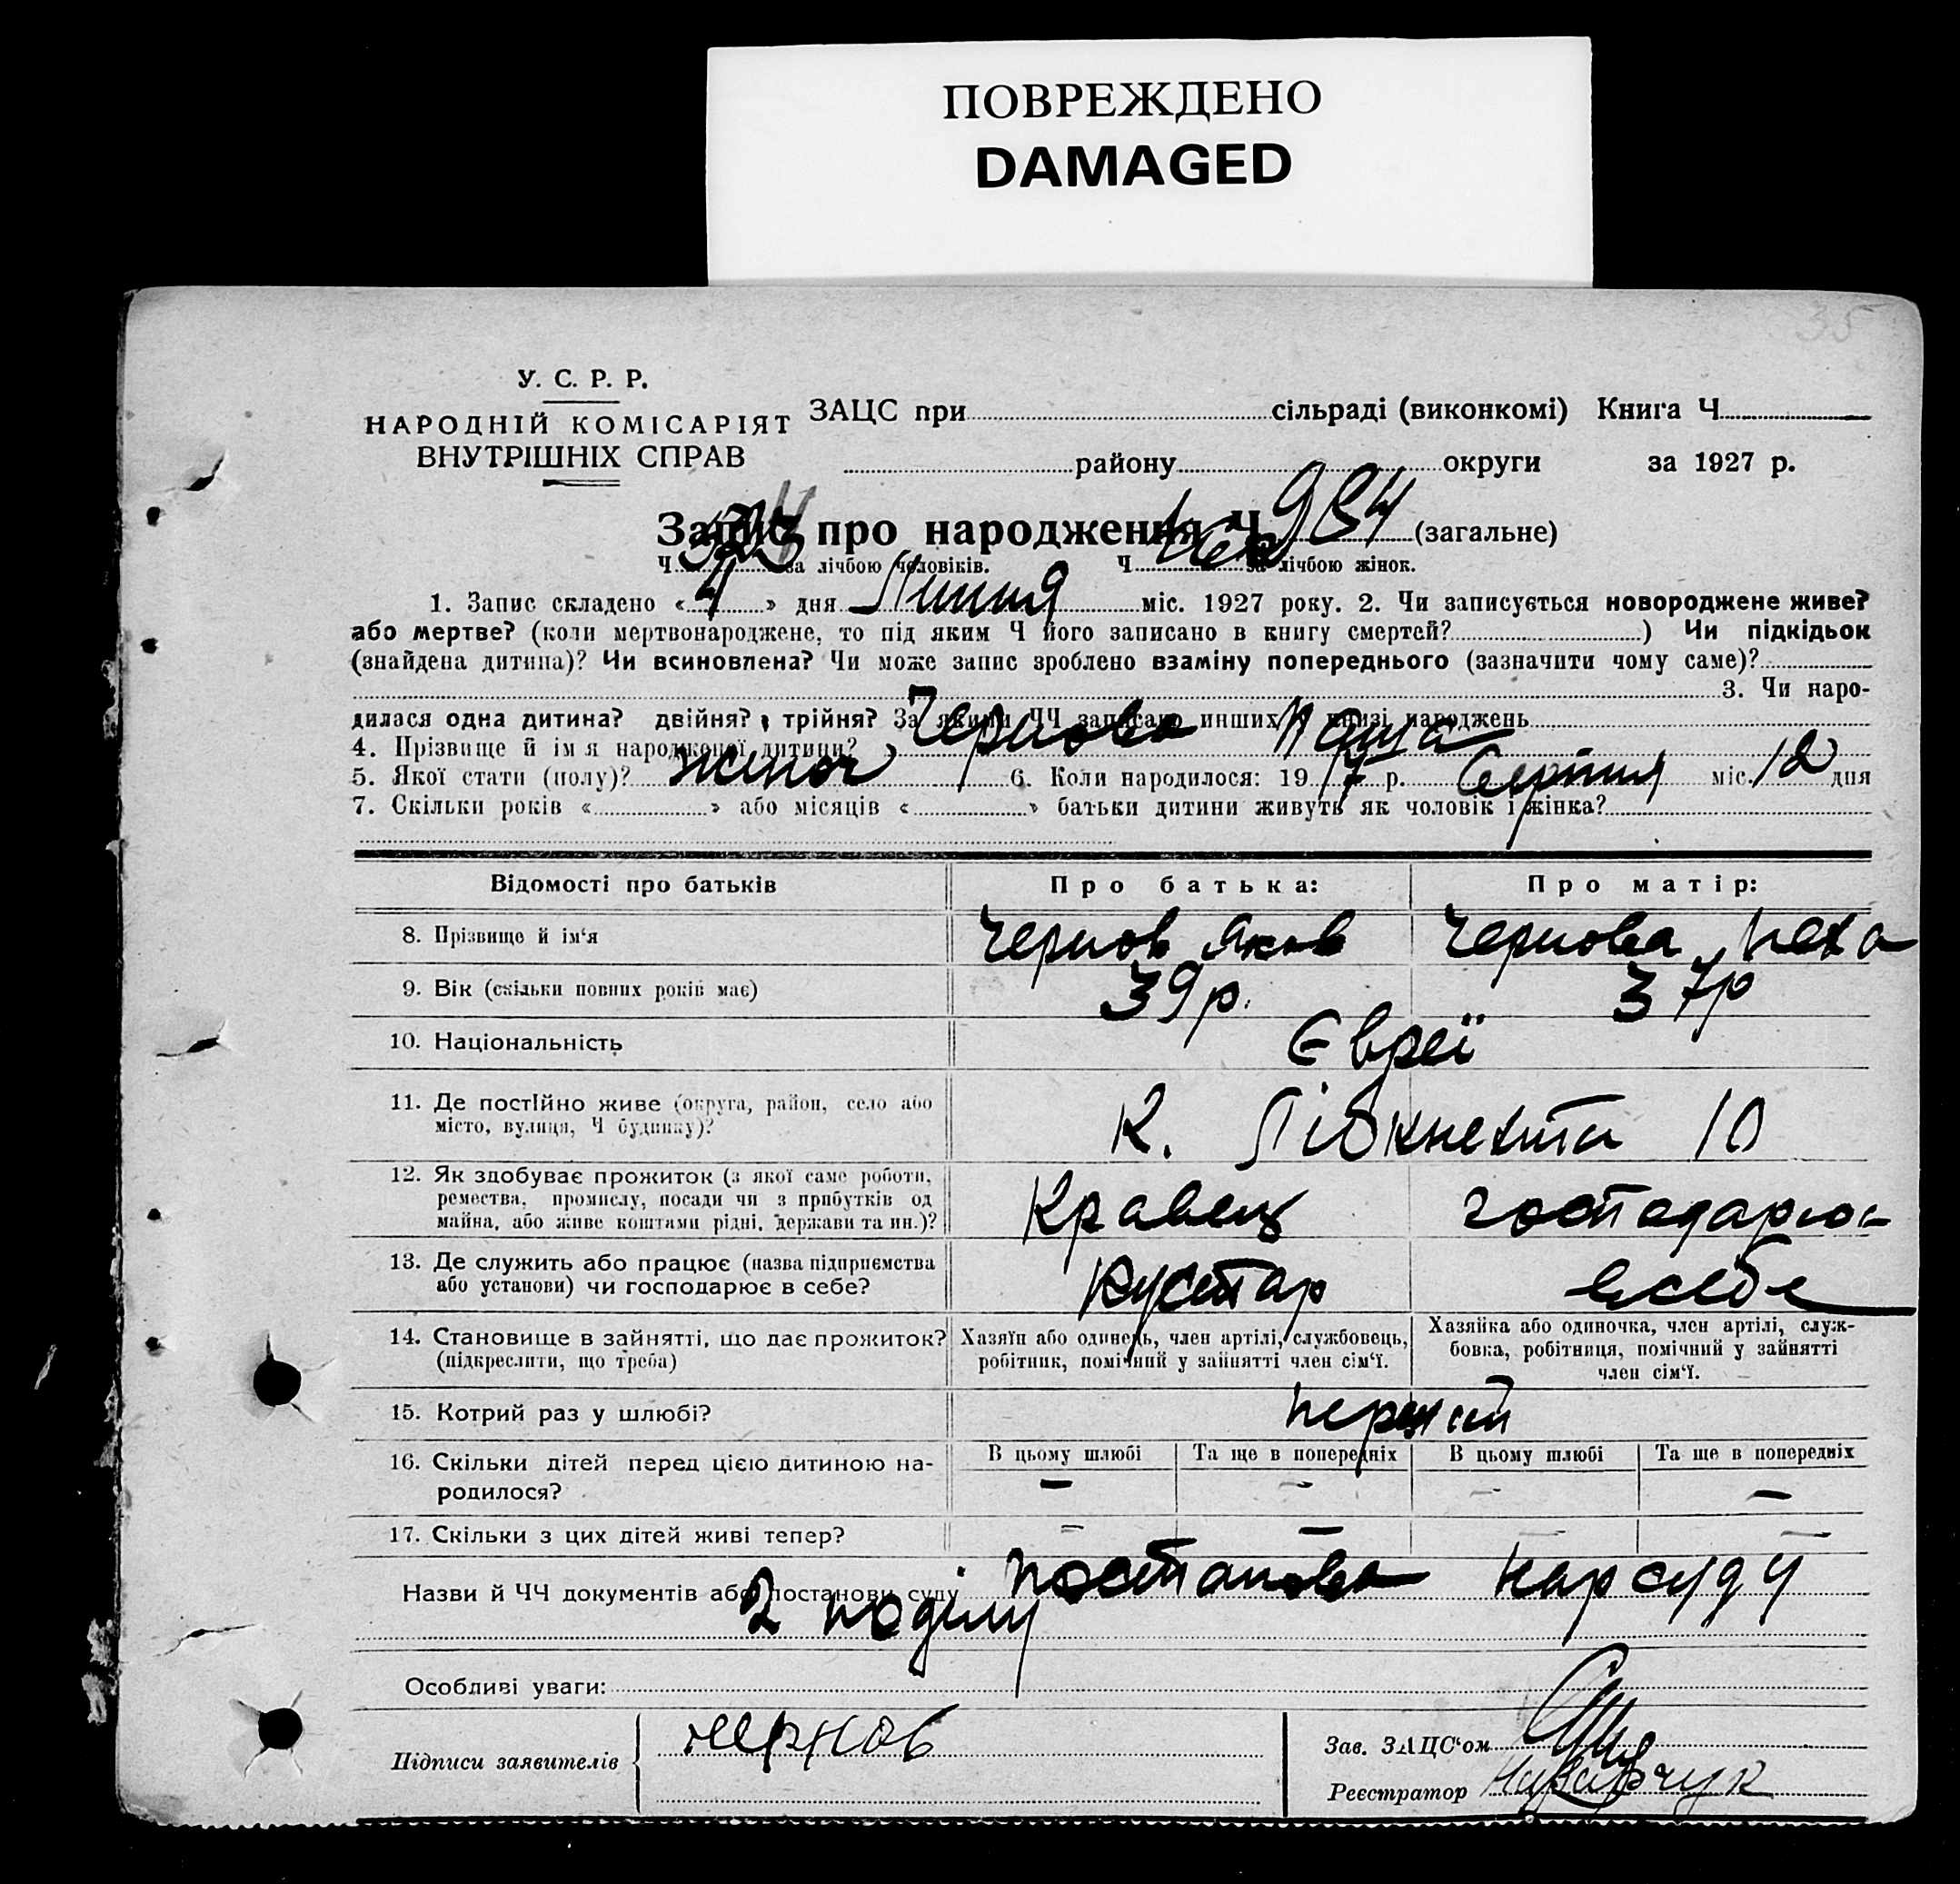 ПОВРЕЖДЕНО
DAMAGED
35
У. С. Р. Р.
НАРОДНІЙ КОМІСАРІЯТ
ВНУТРІШНІХ СПРАВ
ЗАЦС при сільраді (виконкомі) Книга Ч
району округи за 1927 р.
Запис про народження Ч 984 (загальне)
Ч за лічбою чоловіків. Ч за лічбою жінок.
1. Запис складено « 4 » дня Липня міс. 1927 року. 2. Чи записується новороджене живе?
або мертве? (коли мертвонароджене, то під яким Ч його записано в книгу смертей? ) Чи підкідьок
(знайдена дитина)? Чи всиновлена? Чи може запис зроблено взаміну попереднього (зазначити чому саме)?
3. Чи наро-
дилася одна дитина? двійня? трійня? За якими ЧЧ записано инших в книзі народжень
4. Прізвище й ім я народженої дитини? Чернова
5. Якої статі (полу)? жіноч 6. Коли народилося: 19 17 р. Серпня міс. 12 дня
7. Скільки років « » або місяців « » батьки дитини живуть як чоловік і жінка?
Відомості про батьків Про батька: Про матір:
8. Прізвище й ім‘я Чернов Яков Чернова Неха
9. Вік (скільки повних років має) 39 р. 37 р
10. Національність Євреї
11. Де постійно живе (округа, район, село або
місто, вулиця, Ч будинку)? К. Лібкнехта 10
12. Як здобуває прожиток (з якої саме роботи,
ремества, промислу, посади чи з прибутків од
майна, або живе коштами рідні, держави та ин.)? Кравець господарює
13. Де служить або працює (назва підприємства
або установи) чи господарює в себе? Кустар всебе
14. Становище в зайнятті, що дає прожиток?
(підкреслити, що треба)
Хазяїн або одинець, член артілі, службовець,
робітник, помічний у зайнятті член сім‘ї.
Хазяйка або одиночка, член артілі, служ-
бовка, робітниця, помічний у зайнятті
член сім‘ї.
15. Котрий раз у шлюбі? перший
16. Скільки дітей перед цією дитиною на-
родилося?
В цьому шлюбі Та ще в попередніх В цьому шлюбі Та ще в попередніх
— — — —
17. Скільки з цих дітей живі тепер? — — — —
Назви й ЧЧ документів або постанови суду постанова Нарсуду
2 поділу
Особливі уваги:
Підписи заявителів Чернов
Зав. ЗАЦС‘ом
Реєстратор